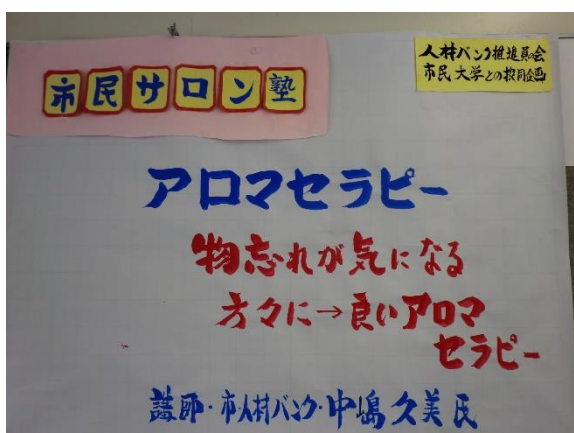 市民サロン塾
人材バンク推進員の会
市民大学との協同企画
アロマセラピー
物忘れが気になる
方々に→良いアロマ
セラピー
講師・市人材バンク・中嶋久美氏